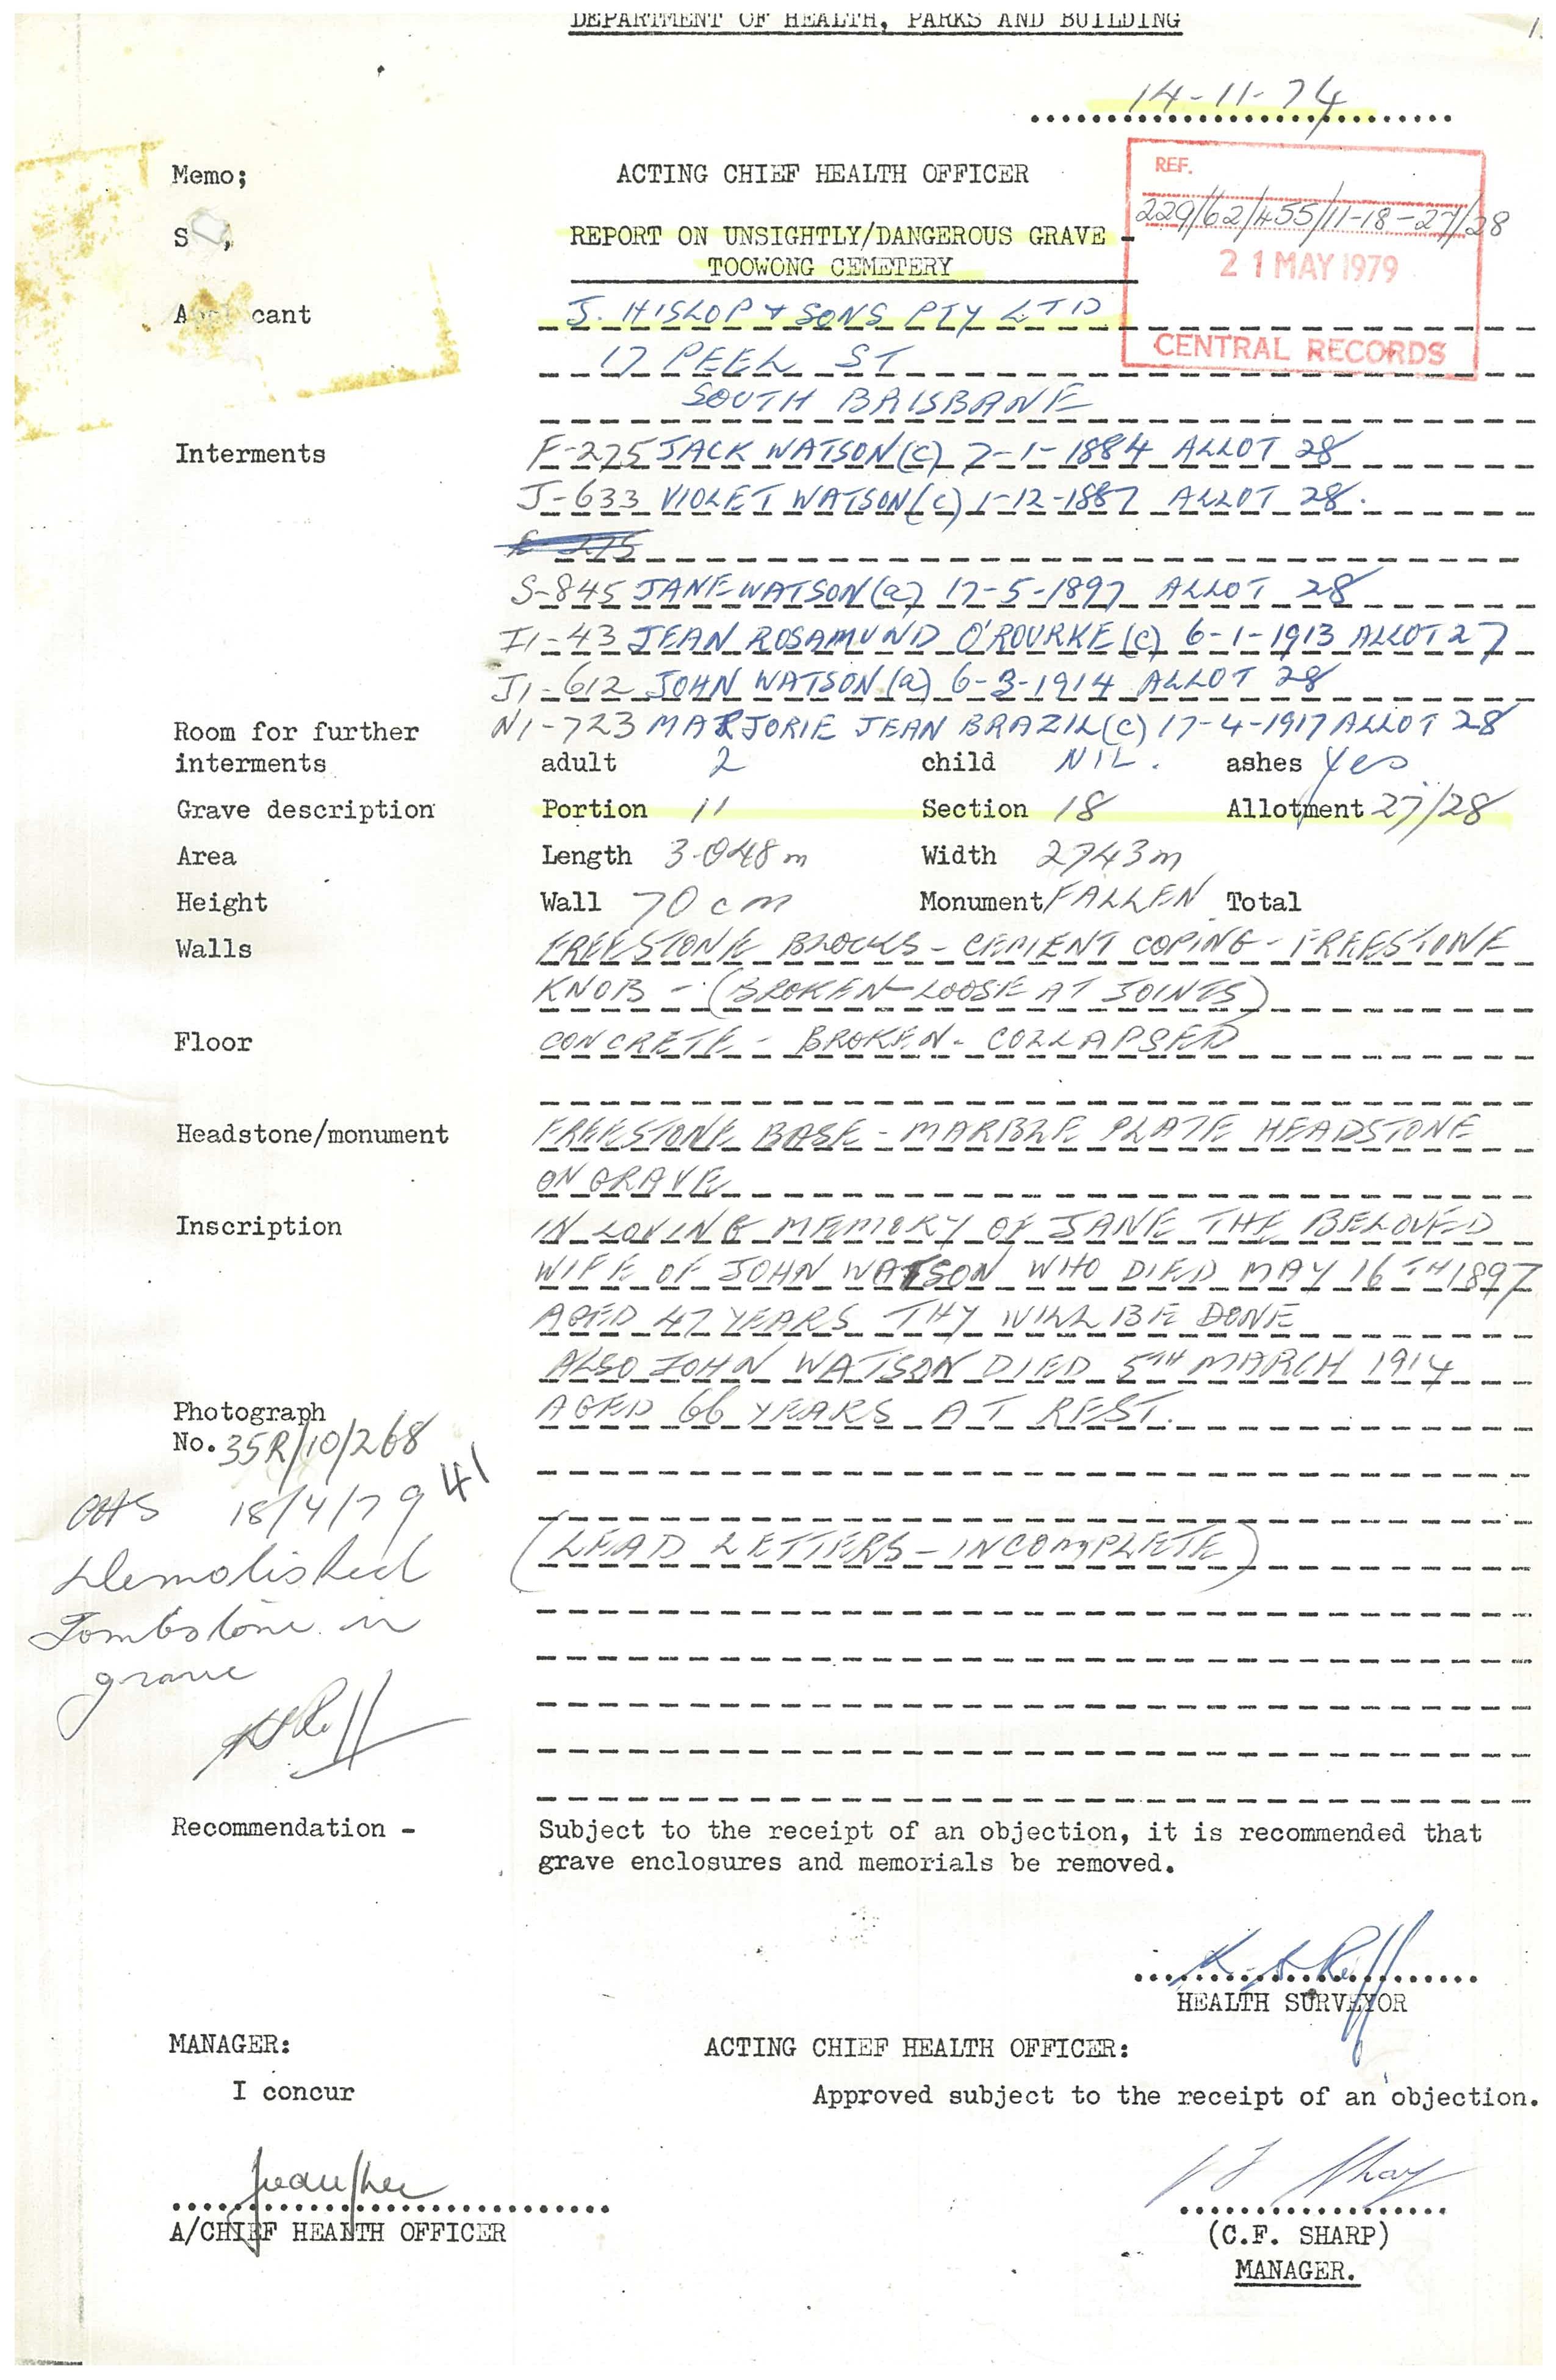 DEPARTMENT OF HEALTH, PARKS AND BUILDING
14-11-74
Memo; ACTING CHIEF HEALTH OFFICER
REF.
229/62/455/11-18-27/28
21 MAY 1979
CENTRAL RECORDS
REPORT ON UNSIGHTLY/DANGEROUS GRAVE -
TOOWONG CEMETERY
J. HISLOP & SONS PTY LTD
17 PEEL ST
SOUTH BRISBANE
Interments F-275 JACK WATSON (c) 7-1-1884 ALLOT 28
J-633 VIOLET WATSON (c) 1-12-1887 ALLOT 28.
S-845 JANE WATSON (a) 17-5-1897 ALLOT 28
I1-43 JEAN ROSAMUND O'ROURKE (c) 6-1-1913 ALLOT 27
J1-612 JOHN WATSON (a) 6-3-1914 ALLOT 28
Room for further N1-723 MARJORIE JEAN BRAZIL (c) 17-4-1917 ALLOT 28
interments adult 2 child NIL. ashes Yes
Grave description Portion 11 Section 18 Allotment 27/28
Area Length 3.048m Width 2743m
Height Wall 70cm Monument FALLEN Total
Walls FREESTONE BLOCKS - CEMENT COPING - FREESTONE
KNOB - (BROKEN-LOOSE AT JOINTS)
Floor CONCRETE - BROKEN - COLLAPSED
Headstone/monument FREESTONE BASE - MARBLE PLATE HEADSTONE
ON GRAVE
Inscription IN LOVING MEMORY OF JANE THE BELOVED
WIFE OF JOHN WATSON WHO DIED MAY 16TH 1897
AGED 47 YEARS THY WILL BE DONE
ALSO JOHN WATSON DIED 5TH MARCH 1914
AGED 66 YEARS AT REST.
(LEAD LETTERS - INCOMPLETE)
Photograph
No. 35R/10/268
41
18/4/79
Demolished
Tombstone in
grave
Recommendation - Subject to the receipt of an objection, it is recommended that
grave enclosures and memorials be removed.
HEALTH SURVEYOR
MANAGER: ACTING CHIEF HEALTH OFFICER:
I concur Approved subject to the receipt of an objection.
A/CHIEF HEALTH OFFICER (C.F. SHARP)
MANAGER.